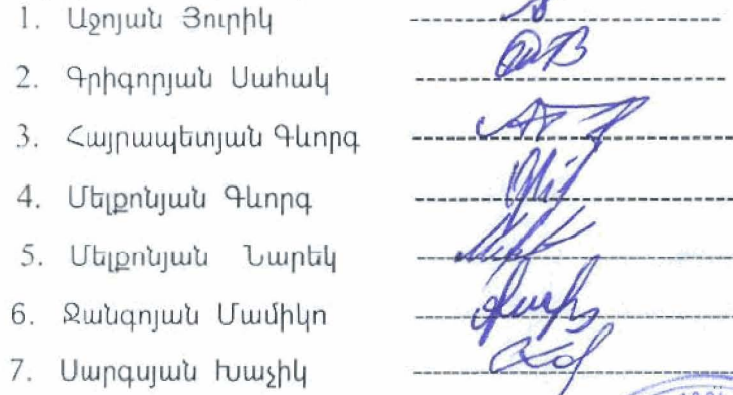 1. Աջոյան Յուրիկ
2. Գրիգորյան Սահակ
3. Հայրապետյան Գևորգ
4. Մելքոնյան Գևորգ
5. Մելքոնյան Նարեկ
6. Ջանգոյան Մամիկո
7. Սարգսյան Խաչիկ